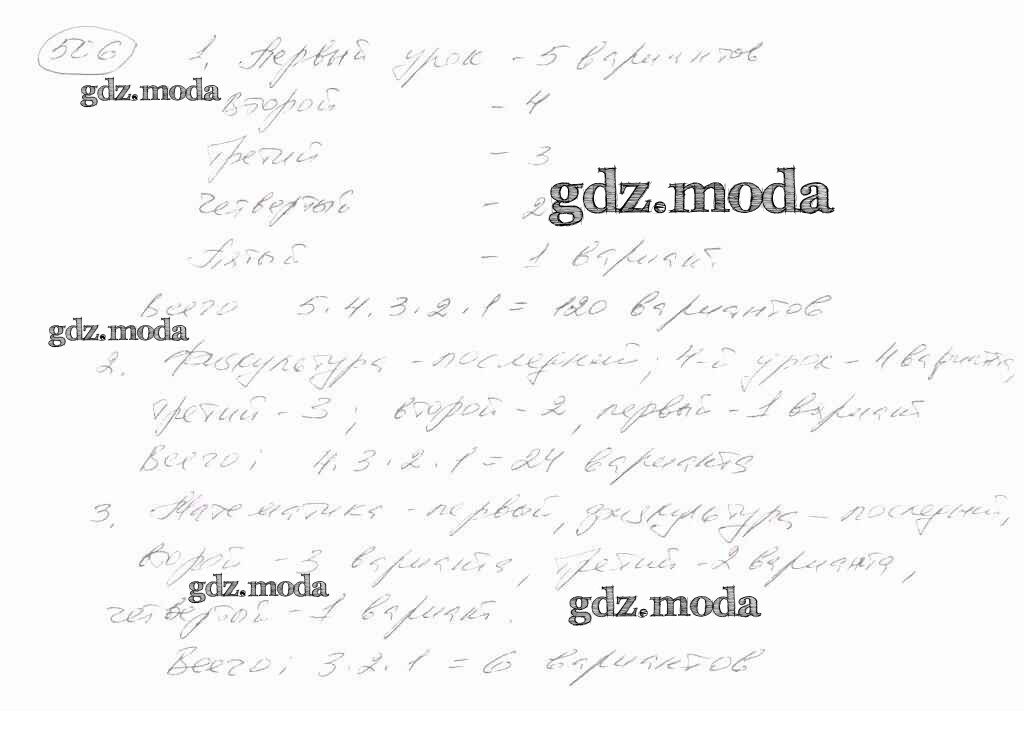 506 1. Первый урок - 5 вариантов
gdz.moda
Второй - 4
Третий - 3
gdz.moda
Четвертый - 2
Пятый - 1 вариант.
Всего 5·4·3·2·1 = 120 вариантов
gdz.moda
2. Физкультура - последний; 4-й урок - 4 варианта,
третий - 3; второй - 2, первый - 1 вариант
Всего: 4·3·2·1 = 24 варианта
3. Математика - первый, физкультура - последний,
Ворой - 3 варианта, Третий - 2 варианта,
gdz.moda
четвертый - 1 вариант.
gdz.moda
Всего: 3·2·1 = 6 вариантов